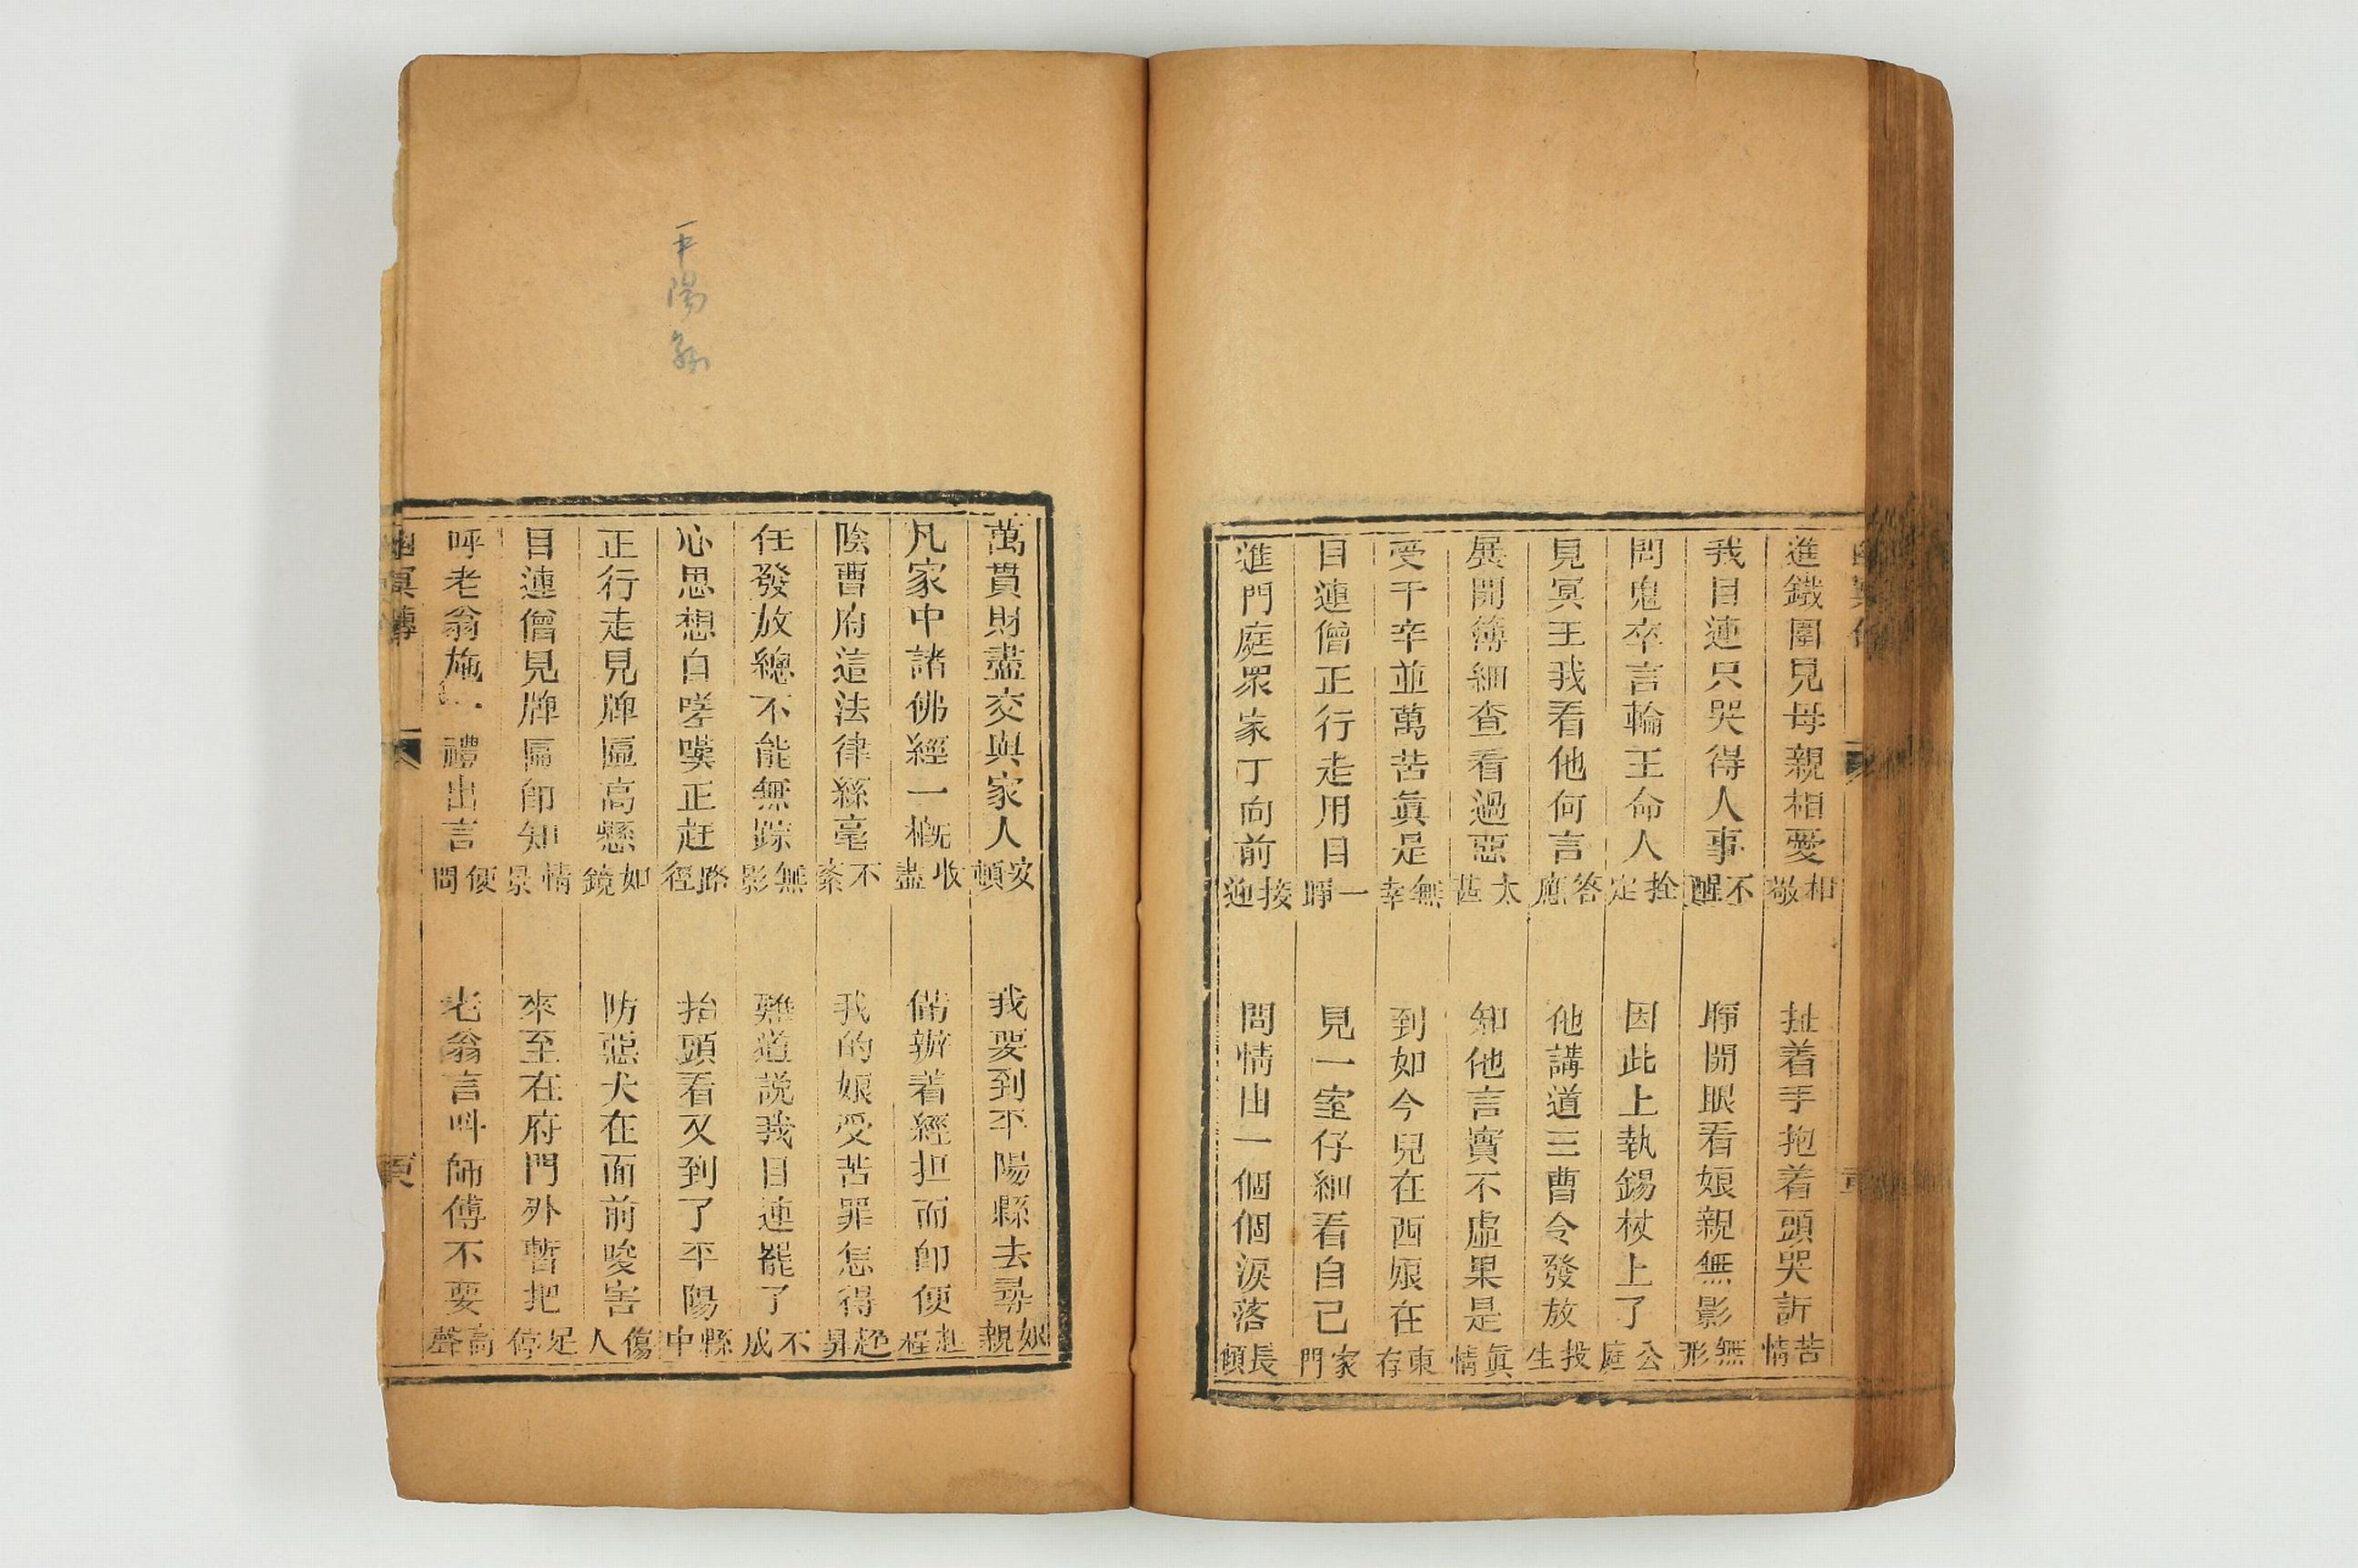 進鐵圍見母親相愛相敬　扯着手抱着頭哭訴苦情
我目連只哭得人事不醒　睜開眼看娘親無影無形
問鬼卒言輪王命人拴定　因此上執錫杖上了公庭
見冥王我看他何言答應　他講道三曹令發放投生
展開簿細查看過惡太甚　知他言實不虛果是眞情
受千辛並萬苦眞是無幸　到如今兒在西娘在東存
目連僧正行走用目一睜　見一室仔細看自己家門
進門庭眾家丁向前接迎　問情由一個個淚落長傾
平陽縣
萬貫財盡交與家人安頓　我要到平陽縣去尋娘親
凡家中諸佛經一概收盡　備辦着經担而卽便赴程
陰曹府這法律絲毫不紊　我的娘受苦罪怎得超昇
任發放總不能無踪無影　難道說我目連罷了不成
心思想自嗟嘆正赶路徑　抬頭看又到了平陽縣中
正行走見牌匾高懸如鏡　防惡犬在面前唆害傷人
目連僧見牌匾卽知情景　來至在府門外暫把足停
呼老翁施一禮出言便問　老翁言叫師傅不要高聲
幽冥傳